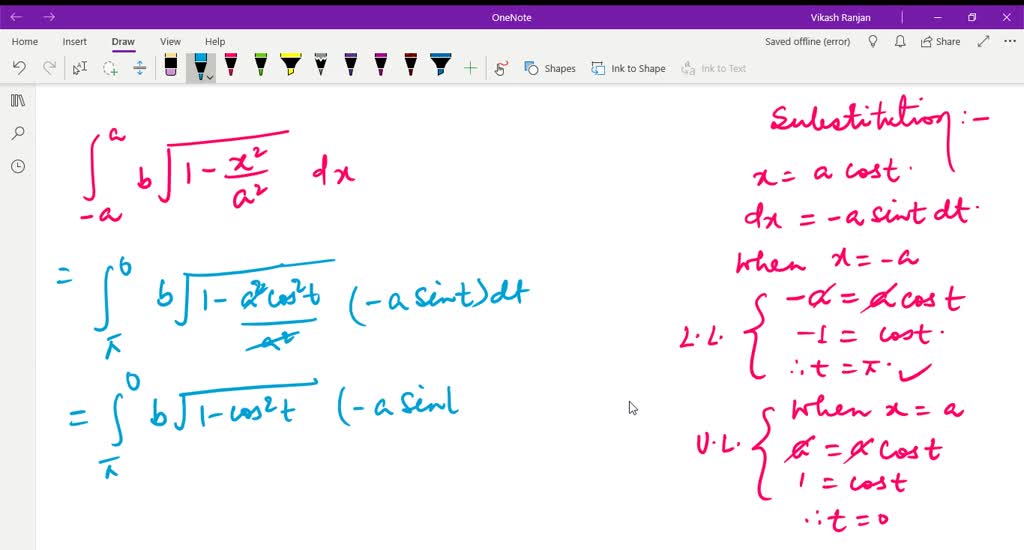 OneNote
Vikash Ranjan
Home Insert Draw View Help
Saved offline (error)
Share
Shapes
Ink to Shape
Ink to Text
∫_{-a}^{a} b√(1 - x²/a²) dx
= ∫_π^0 b√(1 - a²cos²t/a²) (-a sint) dt
= ∫_π^0 b√(1 - cos²t) (-a sint
Substitution :-
x = a cost.
dx = -a sint dt.
When x = -a
L.L. { -a = a cost
-1 = cost.
∴ t = π. ✓
U.L. { When x = a
a = a cost
1 = cost
∴ t = 0